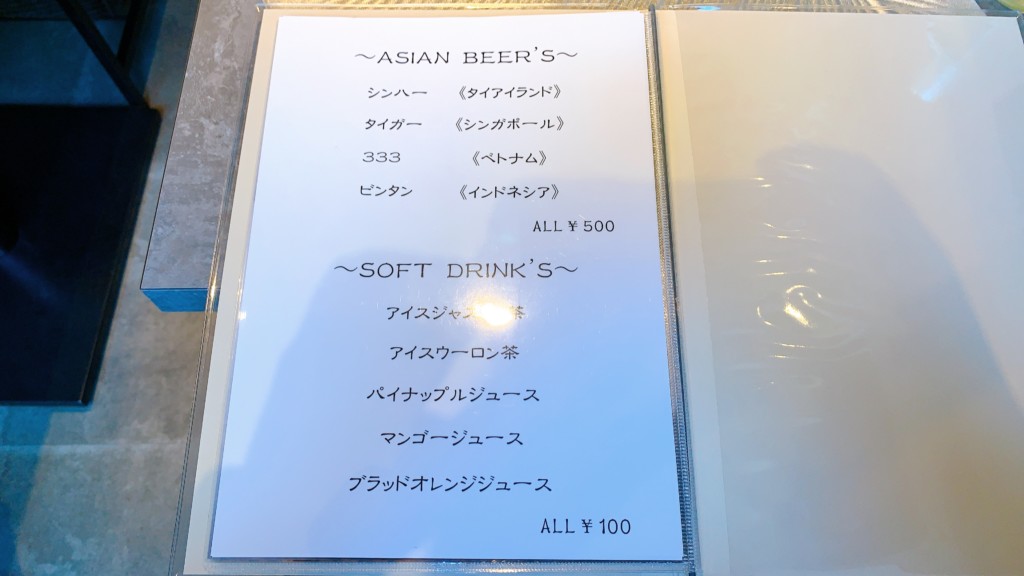 ～ASIAN BEER'S～
シンハー 《タイアイランド》
タイガー 《シンガポール》
333 《ベトナム》
ビンタン 《インドネシア》
ALL ¥ 500
～SOFT DRINK'S～
アイスジャス 茶
アイスウーロン茶
パイナップルジュース
マンゴージュース
ブラッドオレンジジュース
ALL ¥ 100